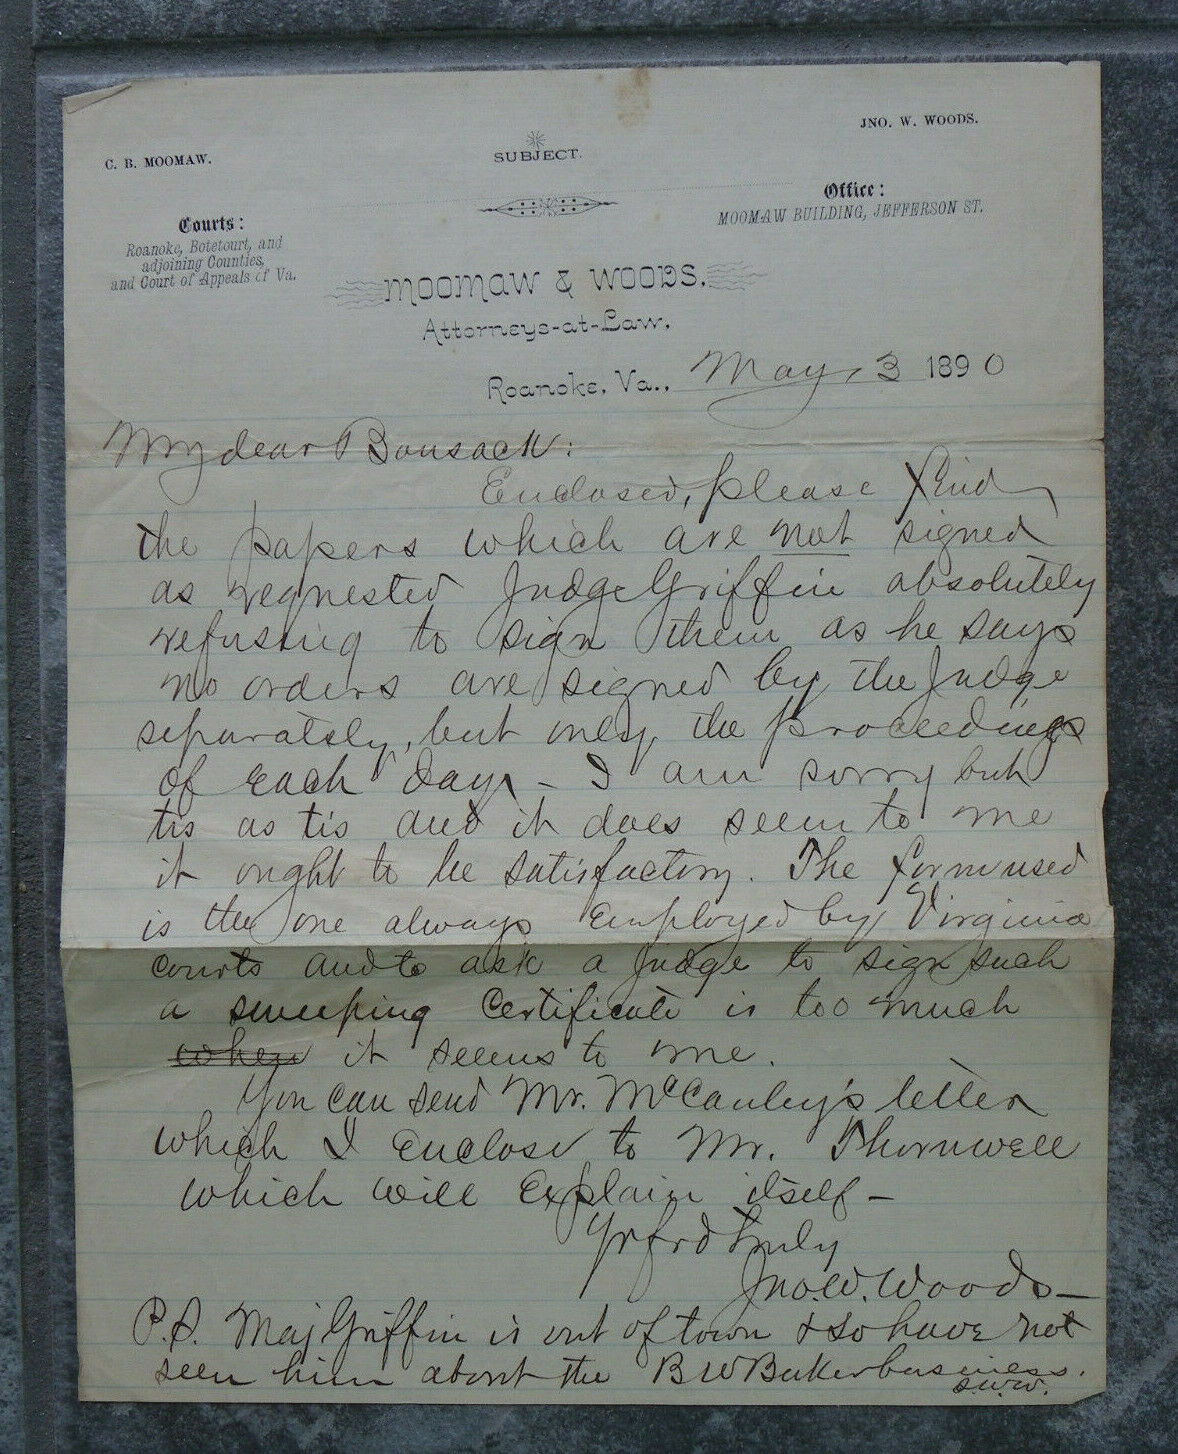 JNO. W. WOODS.
C. B. MOOMAW.
SUBJECT.
Office:
MOOMAW BUILDING, JEFFERSON ST.
Courts:
Roanoke, Botetourt, and
adjoining Counties,
and Court of Appeals of Va.
MOOMAW & WOODS,
Attorneys-at-Law,
Roanoke, Va., May, 3 1890
My dear Bonsack:
Enclosed, please find
the papers which are not signed
as requested Judge Griffin absolutely
refusing to sign them as he says
no orders are signed by the Judge
separately, but only the proceedings
of each day - I am sorry but
tis as tis and it does seem to me
it ought to be satisfactory. The form used
is the one always employed by Virginia
courts and to ask a Judge to sign such
a sweeping Certificate is too much
when it seems to me.
You can send Mr. McCauley's letter
which I enclose to Mr. Thornwell
which will explain itself -
Yr frd truly
Jno. W. Woods -
P.S. Maj Griffin is out of town & so have not
seen him about the B W Baker business.
J.W.W.